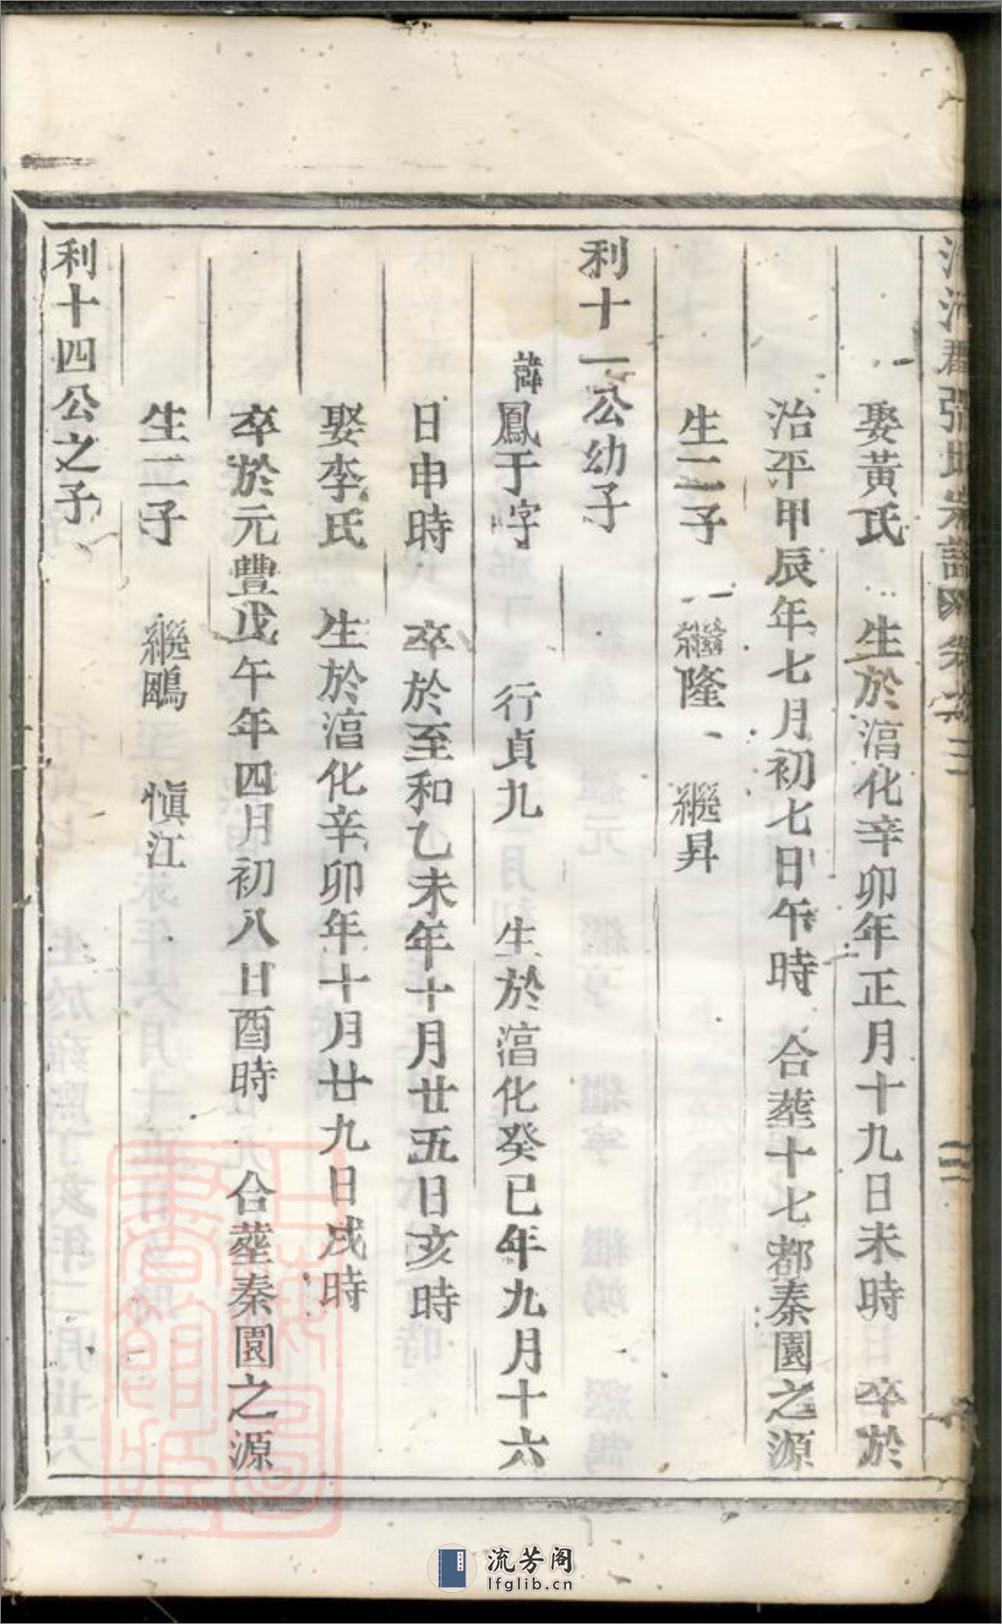 清河郡張氏宗譜 卷之三
娶黃氏 生於淊化辛卯年正月十九日未時 卒於
治平甲辰年七月初七日午時 合塟十七都秦園之源
生二子 繼隆 繼昇
利十一公幼子
諱鳳于字 行貞九 生於淊化癸巳年九月十六
日申時 卒於至和乙未年十月廿五日亥時
娶李氏 生於淊化辛卯年十月廿九日戌時
卒於元豐戊午年四月初八日酉時 合塟秦園之源
生二子 繼鵾 慎江
利十四公之子
流芳阁
lfglib.cn